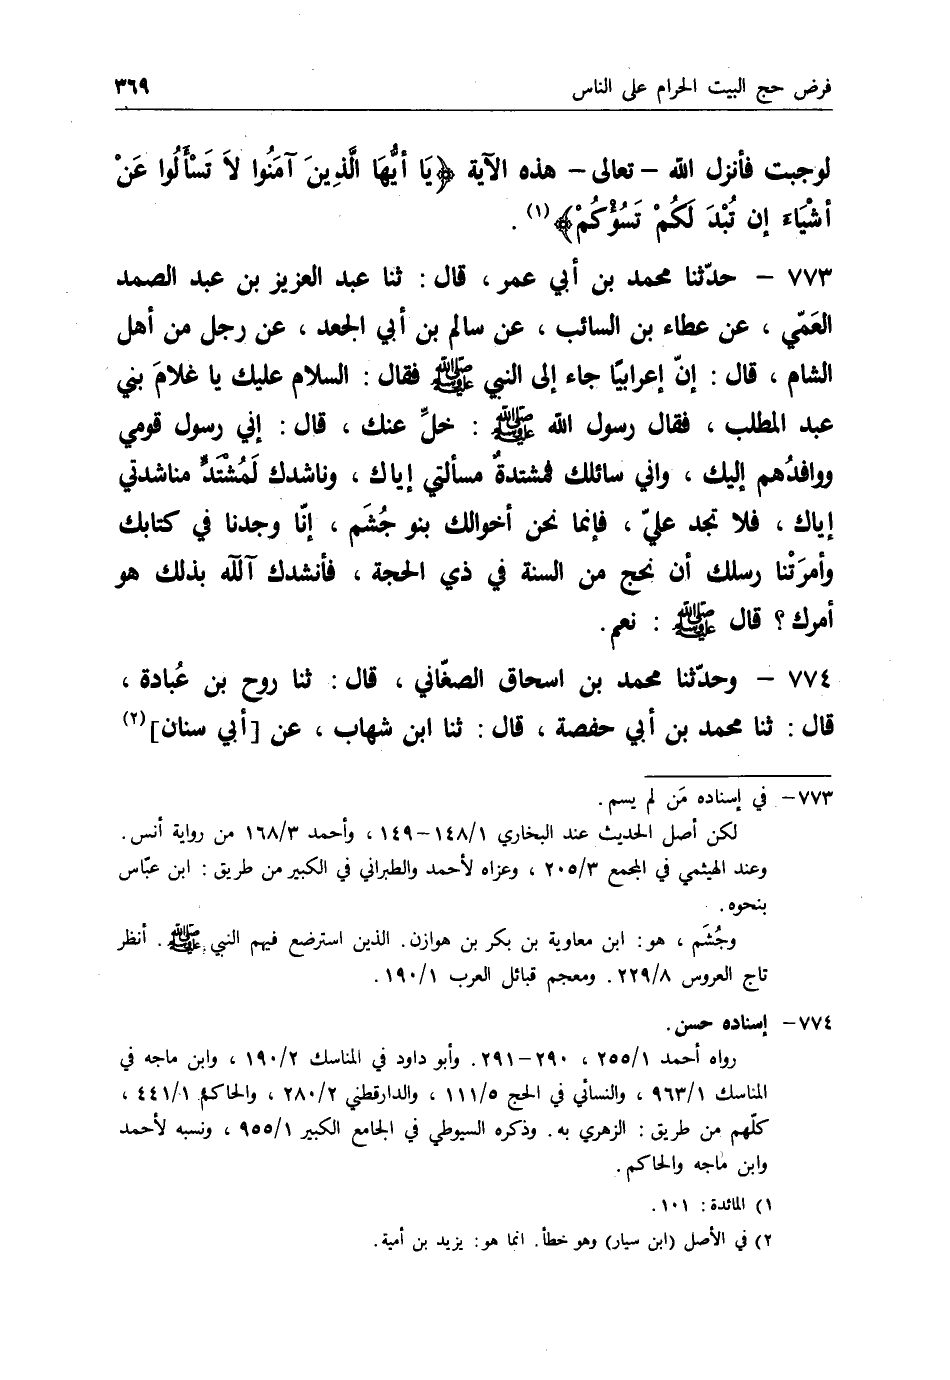 فرض حج البيت الحرام على الناس ٣٦٩
لوجبت فأنزل الله – تعالى – هذه الآية ﴿يَا أَيُّهَا الَّذِينَ آمَنُوا لاَ تَسْأَلُوا عَنْ
أشْيَاءَ إن تُبْدَ لَكُمْ تَسُؤْكُمْ﴾(١) .
٧٧٣ – حدّثنا محمد بن أبي عمر ، قال : ثنا عبد العزيز بن عبد الصمد
العَمّي ، عن عطاء بن السائب ، عن سالم بن أبي الجعد ، عن رجل من أهل
الشام ، قال : إنّ إعرابيًا جاء إلى النبي ﷺ فقال : السلام عليك يا غلامَ بني
عبد المطلب ، فقال رسول الله ﷺ : خلِّ عنك ، قال : إني رسول قومي
ووافدُهم إليك ، واني سائلك فمشتدةٌ مسألتي إياك ، وناشدك لَمُشْتَدٌّ مناشدتي
إياك ، فلا تجد عليّ ، فإنما نحن أخوالك بنو جُشَم ، إنّا وجدنا في كتابك
وأمرَتْنا رسلك أن نحج من السنة في ذي الحجة ، فأنشدك آلله بذلك هو
أمرك ؟ قال ﷺ : نعم.
٧٧٤ – وحدّثنا محمد بن اسحاق الصغّاني ، قال : ثنا روح بن عُبادة ،
قال : ثنا محمد بن أبي حفصة ، قال : ثنا ابن شهاب ، عن [أبي سنان](٢)
٧٧٣– في إسناده مَن لم يسم .
لكن أصل الحديث عند البخاري ١٤٨/١–١٤٩ ، وأحمد ١٦٨/٣ من رواية أنس .
وعند الهيثمي في المجمع ٢٠٥/٣ ، وعزاه لأحمد والطبراني في الكبير من طريق : ابن عبّاس
بنحوه .
وجُشَم ، هو : ابن معاوية بن بكر بن هوازن. الذين استرضع فيهم النبي ﷺ . أنظر
تاج العروس ٢٢٩/٨ . ومعجم قبائل العرب ١٩٠/١ .
٧٧٤– إسناده حسن .
رواه أحمد ٢٥٥/١ ، ٢٩٠–٢٩١ . وأبو داود في المناسك ١٩٠/٢ ، وابن ماجه في
المناسك ٩٦٣/١ ، والنسائي في الحج ١١١/٥ ، والدارقطني ٢٨٠/٢ ، والحاكم ٤٤١/١ ،
كلّهم من طريق : الزهري به . وذكره السيوطي في الجامع الكبير ٩٥٥/١ ، ونسبه لأحمد
وابن ماجه والحاكم .
١) المائدة : ١٠١ .
٢) في الأصل (ابن سيار) وهو خطأ . انما هو : يزيد بن أمية .